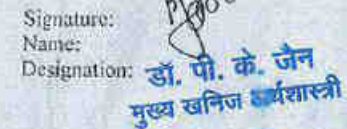 Signature:
Name:
Designation: डॉ. पी. के. जैन
मुख्य खनिज अर्थशास्त्री